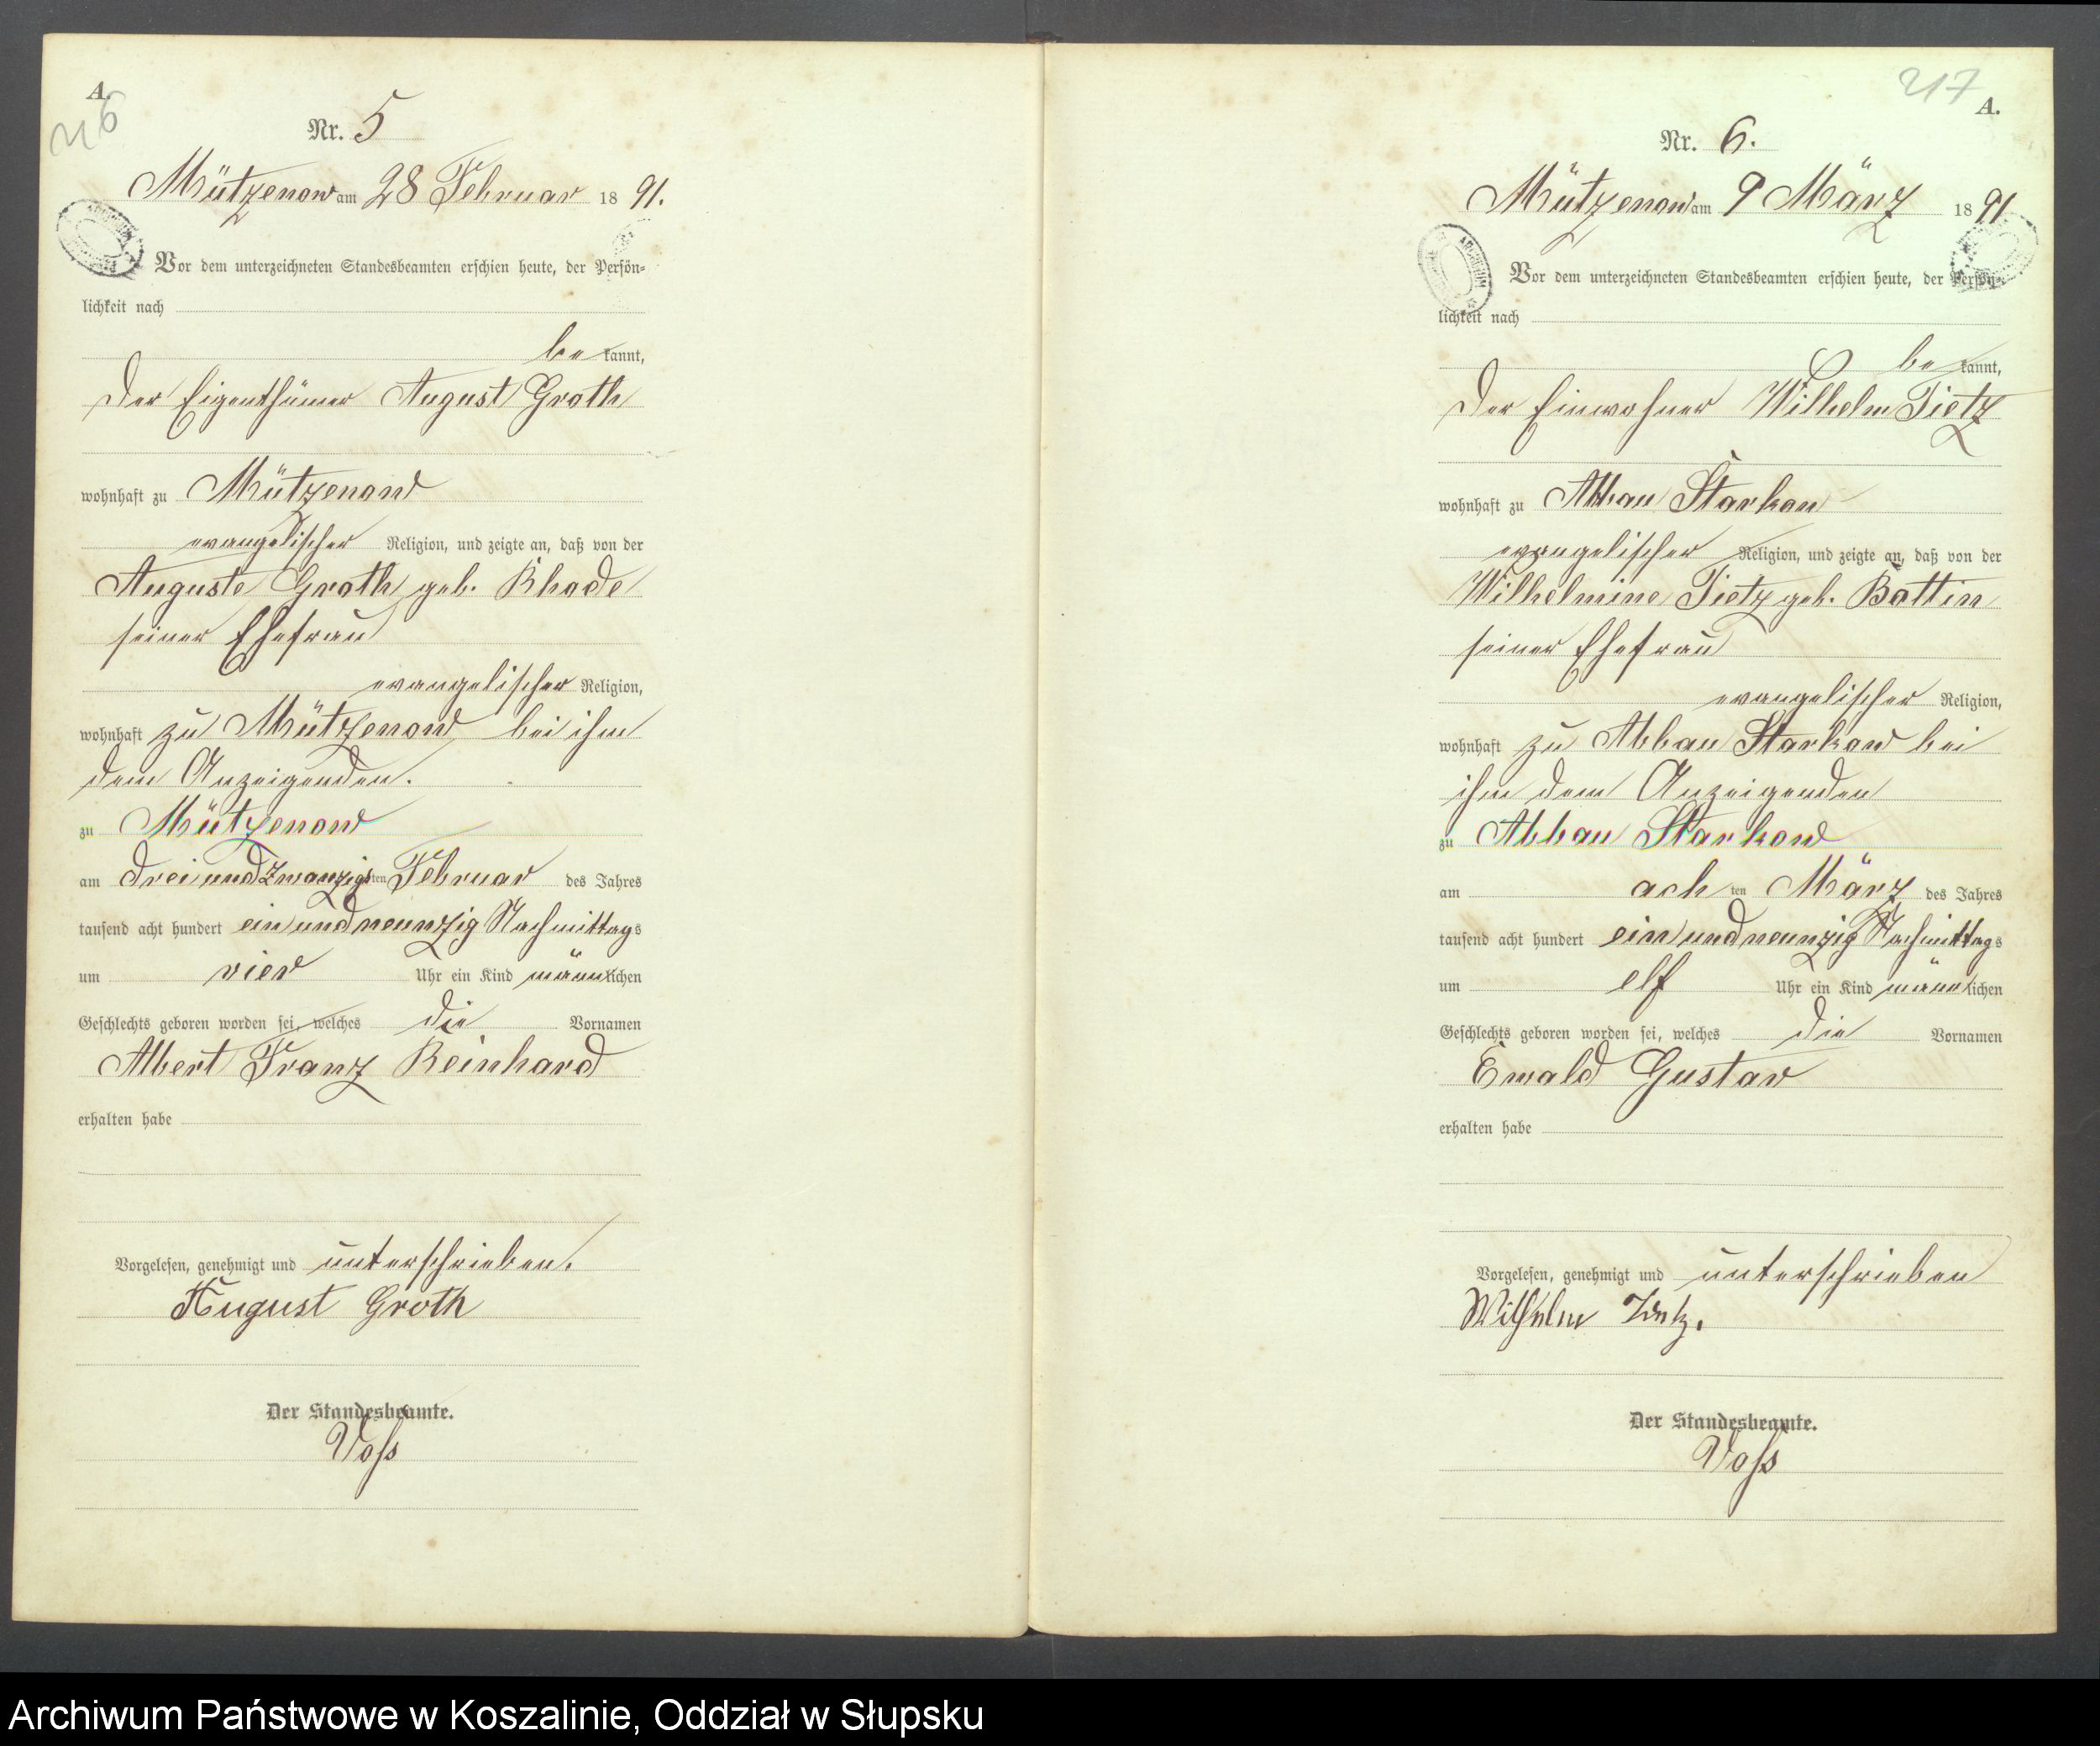 A.
216
Nr. 5
Mützenow am 28 Februar 18 91.
Vor dem unterzeichneten Standesbeamten erschien heute, der Persön=
lichkeit nach
be kannt,
der Eigenthümer August Groth
wohnhaft zu Mützenow
evangelischer Religion, und zeigte an, daß von der
Auguste Groth geb. Rhode
seiner Ehefrau
evangelischer Religion,
wohnhaft zu Mützenow bei ihm
dem Anzeigenden.
zu Mützenow
am dreiundzwanzigsten Februar des Jahres
tausend acht hundert ein und neunzig Nachmittags
um vier Uhr ein Kind männlichen
Geschlechts geboren worden sei, welches die Vornamen
Albert Franz Reinhard
erhalten habe
Vorgelesen, genehmigt und unterschrieben.
August Groth
Der Standesbeamte.
Voß
217
A.
Nr. 6.
Mützenow am 9 März 18 91.
ARCHIWUM
Vor dem unterzeichneten Standesbeamten erschien heute, der Persön=
lichkeit nach
be kannt,
der Einwohner Wilhelm Tietz
wohnhaft zu Abbau Starkow
evangelischer Religion, und zeigte an, daß von der
Wilhelmine Tietz geb. Bottin
seiner Ehefrau
evangelischer Religion,
wohnhaft zu Abbau Starkow bei
ihm dem Anzeigenden
zu Abbau Starkow
am ach ten März des Jahres
tausend acht hundert ein und neunzig Nachmittags
um elf Uhr ein Kind männlichen
Geschlechts geboren worden sei, welches die Vornamen
Ewald Gustav
erhalten habe
Vorgelesen, genehmigt und unterschrieben
Wilhelm Tietz.
Der Standesbeamte.
Voß
Archiwum Państwowe w Koszalinie, Oddział w Słupsku